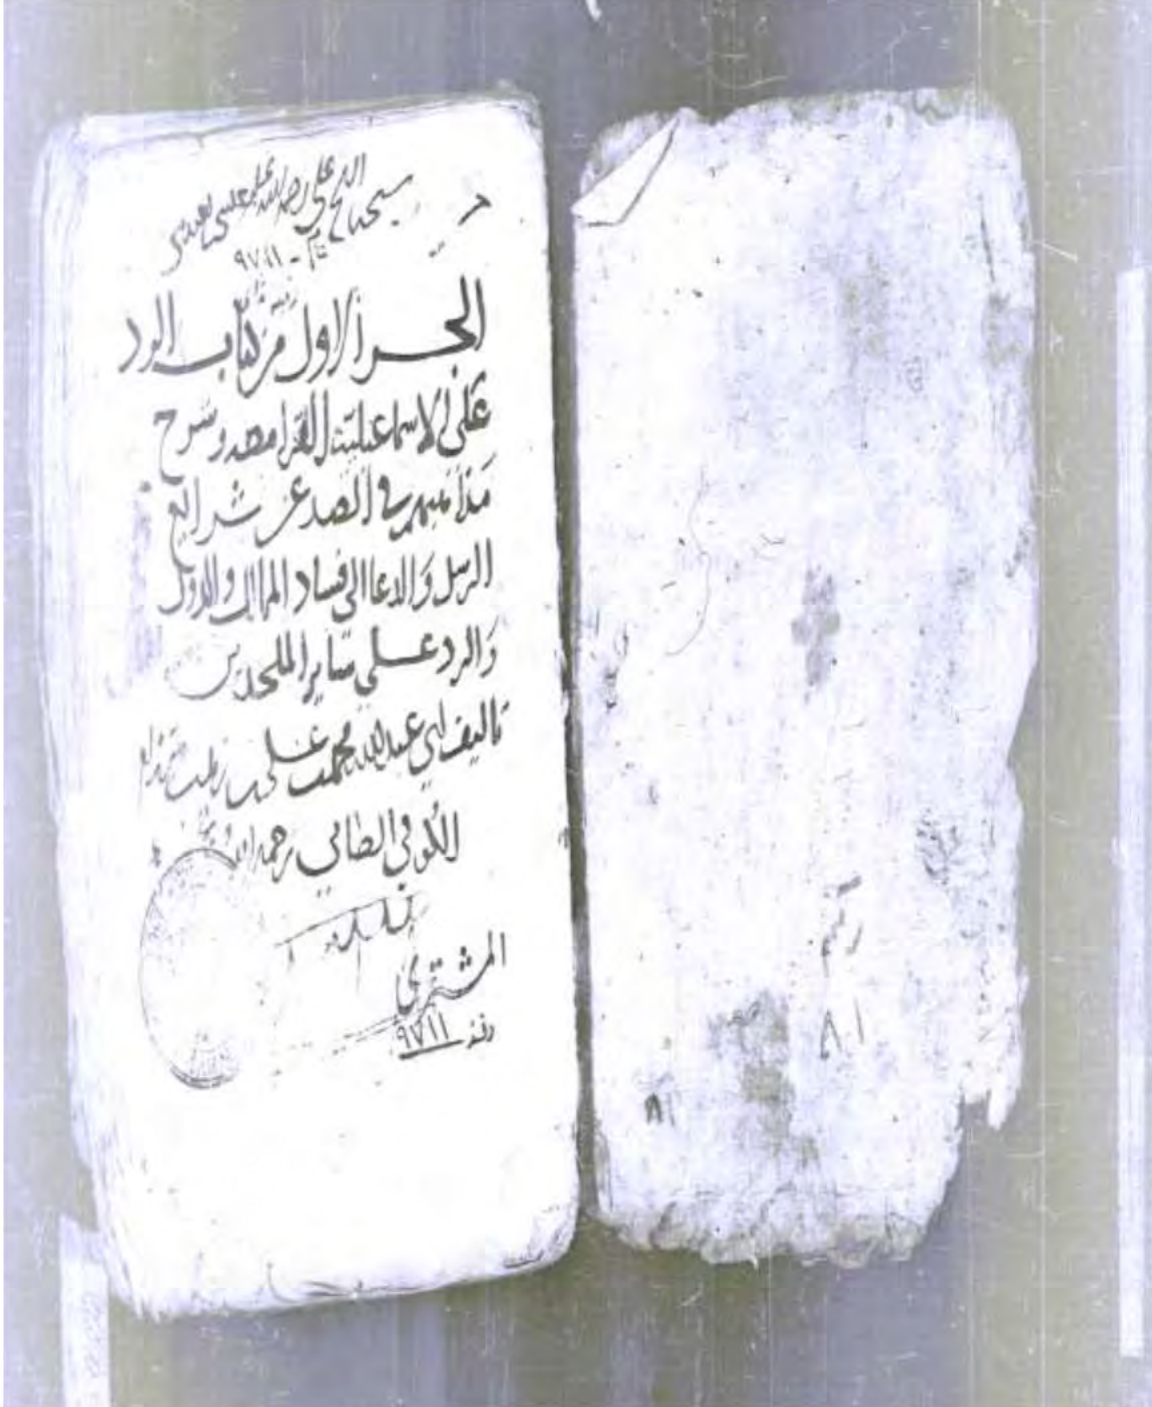 ٩٧١١
الجزء الاول من كتاب الرد
على الاسماعيلية القرامطه وشرح
مذاهبهم في الصد عن شرايع
الرسل والدعا الى فساد الممالك والدول
والرد علي ساير الملحدين
تاليف ابي عبدالله محمد بن علي بن
الكوفي الطائي رحمه الله
المشترى
٩٧١١
رقم
٨١
٨١